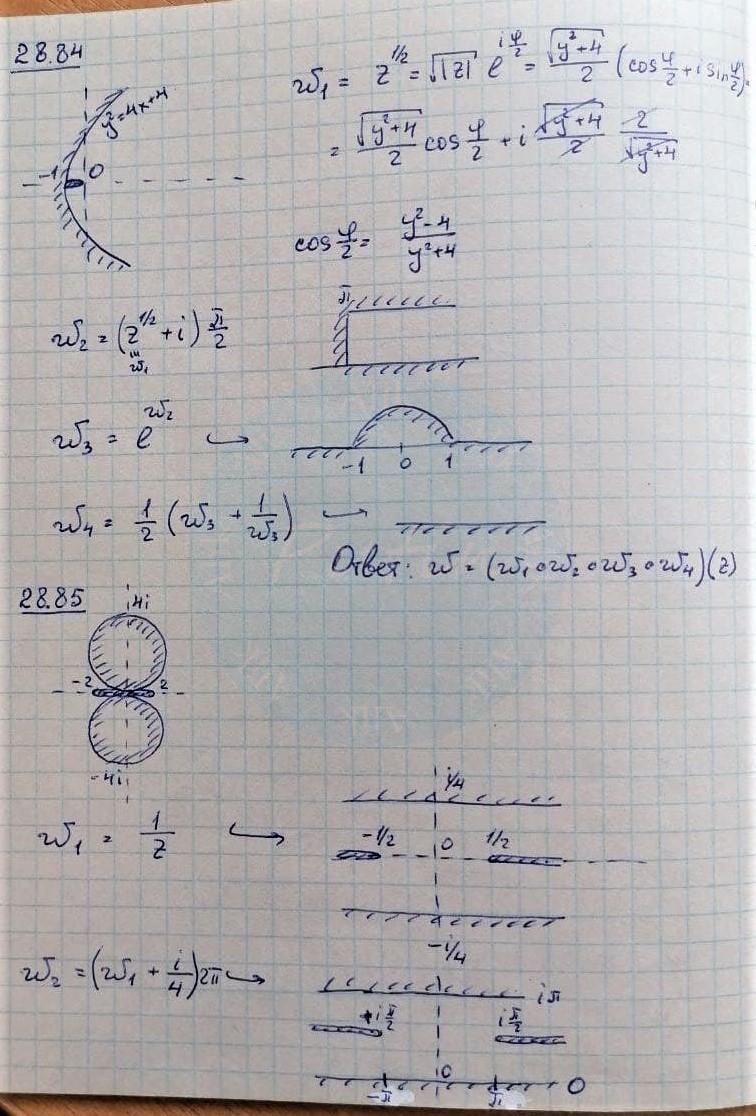 28.84
w₁ = z^{1/2} = √|z| e^{iφ/2} = √(y²+4)/2 (cos φ/2 + i sin φ/2) =
y²=4x+4
-1 0
= √(y²+4)/2 cos φ/2 + i √(y²+4)/2 2/√(y²+4)
cos φ/2 = (y²-4)/(y²+4)
w₂ = (z^{1/2} + i) π/2
w₁
π
w₃ = e^{w₂} ↪
-1 0 1
w₄ = 1/2 (w₃ + 1/w₃) ↪
Ответ: w = (w₁∘w₂∘w₃∘w₄)(z)
28.85
4i
-2 2
-4i
w₁ = 1/z ↪
i/4
-1/2 0 1/2
-i/4
w₂ = (w₁ + i/4)2π ↪
iπ
+i π/2 i π/2
0 0
-π π